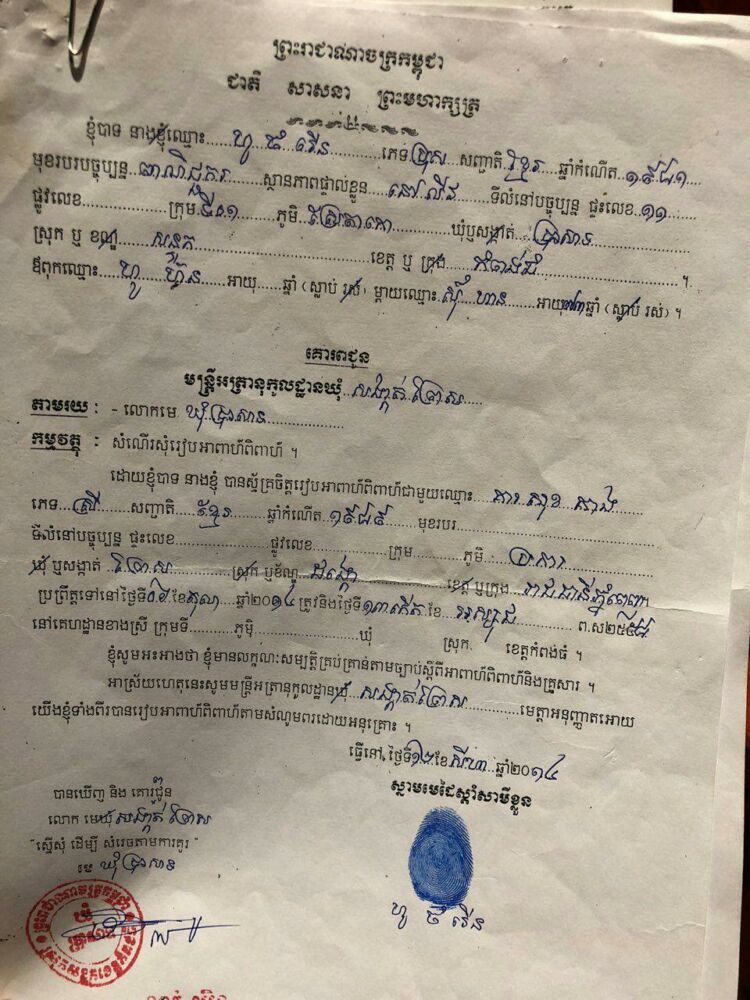 ព្រះរាជាណាចក្រកម្ពុជា
ជាតិ សាសនា ព្រះមហាក្សត្រ
ខ្ញុំបាទ នាងខ្ញុំឈ្មោះ ហូ ធំ វឿន ភេទ ប្រុស សញ្ជាតិ ខ្មែរ ឆ្នាំកំណើត ១៩៨១
មុខរបរបច្ចុប្បន្ន ពាណិជ្ជករ ស្ថានភាពផ្ទាល់ខ្លួន នៅលីវ ទីលំនៅបច្ចុប្បន្ន ផ្ទះលេខ ១១
ផ្លូវលេខ ក្រុម ទី០១ ភូមិ ឃុំឫសង្កាត់ ប្រាសាទ
ស្រុក ឬ ខណ្ឌ សន្ទុក ខេត្ត ឬ ក្រុង កំពង់ធំ ។
ឪពុកឈ្មោះ ហូ ហ៊ួន អាយុ ឆ្នាំ (ស្លាប់ រស់) ម្តាយឈ្មោះ ស៊ឹ ហាន អាយុ ឆ្នាំ (ស្លាប់ រស់) ។
គោរពជូន
មន្ត្រីអត្រានុកូលដ្ឋានឃុំ សង្កាត់ ព្រៃស
តាមរយៈ : - លោកមេ ឃុំប្រាសាទ
កម្មវត្ថុ : សំណើរសុំរៀបអាពាហ៍ពិពាហ៍ ។
ដោយខ្ញុំបាទ នាងខ្ញុំ បានស្ម័គ្រចិត្តរៀបអាពាហ៍ពិពាហ៍ជាមួយឈ្មោះ សុខ
ភេទ ស្រី សញ្ជាតិ ខ្មែរ ឆ្នាំកំណើត ១៩៨៩ មុខរបរ
ទីលំនៅបច្ចុប្បន្ន ផ្ទះលេខ ផ្លូវលេខ ក្រុម ភូមិ
ឃុំ ឫសង្កាត់ ព្រៃស ស្រុក ឬខ័ណ្ឌ ដង្កោ ខេត្ត ឬក្រុង រាជធានីភ្នំពេញ
ប្រព្រឹត្តទៅនៅថ្ងៃទី ០៦ ខែ តុលា ឆ្នាំ២០១៤ ត្រូវនឹងថ្ងៃទី ១៣កើត ខែ អស្សុជ ព.ស២៥៥៨
នៅគេហដ្ឋានខាងស្រី ក្រុមទី ភូមិ ឃុំ ស្រុក ខេត្តកំពង់ធំ ។
ខ្ញុំសូមអះអាងថា ខ្ញុំមានលក្ខណៈសម្បត្តិគ្រប់គ្រាន់តាមច្បាប់ស្តីពីអាពាហ៍ពិពាហ៍និងគ្រួសារ ។
អាស្រ័យហេតុនេះសូមមន្ត្រីអត្រានុកូលដ្ឋានឃុំ សង្កាត់ព្រៃស មេត្តាអនុញ្ញាតអោយ
យើងខ្ញុំទាំងពីរបានរៀបអាពាហ៍ពិពាហ៍តាមសំណូមពរដោយអនុគ្រោះ ។
ធ្វើនៅ, ថ្ងៃទី ១២ ខែ សីហា ឆ្នាំ២០១៤
ស្នាមមេដៃស្តាំសាមីខ្លួន
បានឃើញ និង គោរពជូន
លោក មេឃុំ សង្កាត់ ព្រៃស
"ស្នើសុំ ដើម្បី សំរេចតាមការគួរ"
មេ ឃុំប្រាសាទ
ហូ ធំ វឿន